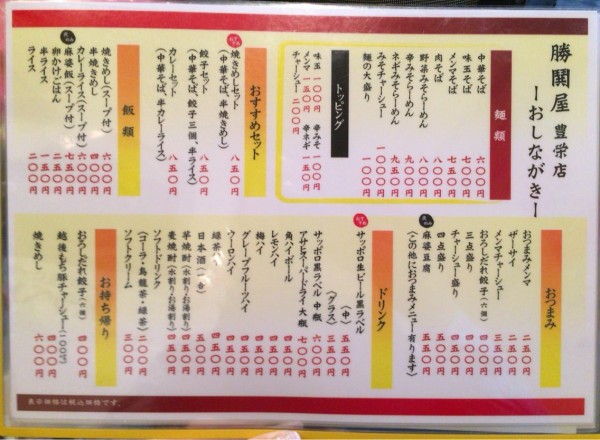 勝鬨屋 豊栄店
ーおしながきー
麺類
中華そば 六〇〇円
味玉そば 七〇〇円
メンマそば 七五〇円
肉そば 八〇〇円
野菜みそらーめん 八〇〇円
辛みそらーめん
ネギみそらーめん 九五〇円
みそチャーシュー 一〇〇〇円
麺の大盛り 一〇〇円
トッピング
味玉 一〇〇円
メンマ 一五〇円
チャーシュー 二〇〇円
辛みそ 一〇〇円
辛ネギ 一五〇円
おすすめセット
焼きめしセット 八五〇円
(中華そば、半焼きめし)
餃子セット 八五〇円
(中華そば、餃子三個、半ライス)
カレーセット 八五〇円
(中華そば、半カレーライス)
飯類
焼きめし(スープ付) 六〇〇円
半焼きめし 四〇〇円
カレーライス(スープ付) 六〇〇円
麻婆飯(スープ付) 七五〇円
卵かけごはん
半ライス 一五〇円
ライス 二〇〇円
おつまみ
おつまみメンマ 二五〇円
ザーサイ 二五〇円
メンマチャーシュー 三五〇円
おろしだれ餃子(六個) 四五〇円
三点盛り 四五〇円
チャーシュー盛り
四点盛り 五五〇円
麻婆豆腐 五五〇円
(この他におつまみメニュー有ります)
ドリンク
サッポロ生ビール黒ラベル
(中) 五五〇円
(グラス) 三五〇円
サッポロ黒ラベル 中瓶 六〇〇円
アサヒスーパードライ大瓶 七〇〇円
角ハイボール 四五〇円
レモンハイ 四五〇円
梅ハイ 四五〇円
グレープフルーツハイ 四五〇円
ウーロンハイ 四五〇円
緑茶ハイ 四五〇円
日本酒(一合) 五〇〇円
芋焼酎(水割り・お湯割り) 四五〇円
麦焼酎(水割り・お湯割り) 四五〇円
ソフトドリンク 二〇〇円
(コーラ・烏龍茶・緑茶)
ソフトクリーム 三〇〇円
お持ち帰り
おろしだれ餃子(六個) 四五〇円
越後もち豚チャーシュー(100g)
焼きめし 六〇〇円
表示価格は税込価格です。